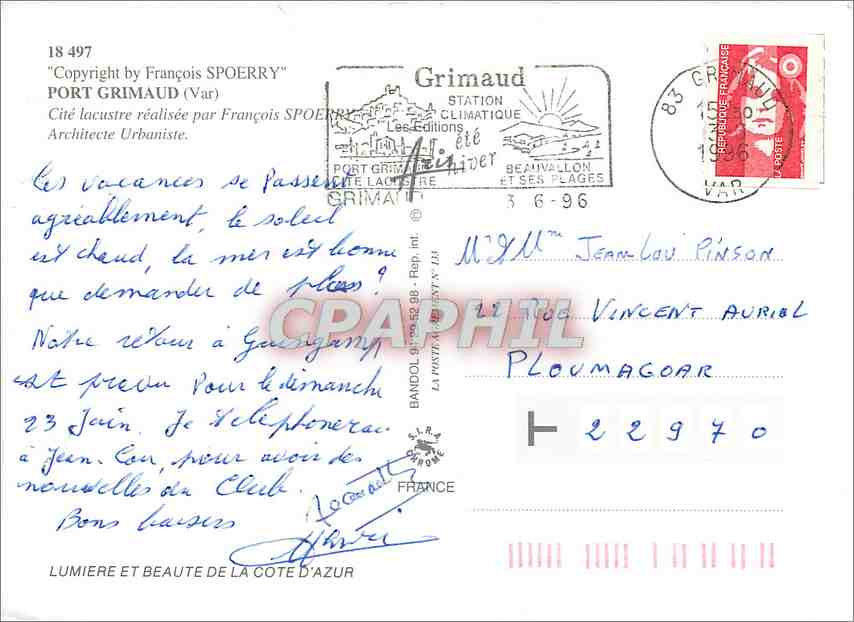 18 497
"Copyright by François SPOERRY"
PORT GRIMAUD (Var)
Cité lacustre réalisée par François SPOERRY
Architecte Urbaniste.
Grimaud
STATION
CLIMATIQUE
Les Editions
été
hiver
PORT GRIMAUD
CITE LACUSTRE
BEAUVALLON
ET SES PLAGES
GRIMAUD
3 6-96
83 GRIMAUD
1996
VAR
REPUBLIQUE FRANÇAISE
LA POSTE
Ces vacances se passent
agréablement, le soleil
est chaud, la mer est bonne
que demander de plus ?
Notre retour à Guingamp
est prevu pour le dimanche
23 Juin. Je telephonerai
à Jean-Lou, pour avoir des
nouvelles du Club.
Bons baisers
LUMIERE ET BEAUTE DE LA COTE D'AZUR
BANDOL 94 29 52 98 - Rep. int. ©
LA POSTE AGREMENT N° 133
S.I.R.A.
CHROME
FRANCE
Mr & Mme Jean Lou Pinson
22 Rue Vincent Auriol
Ploumagoar
22970
CPAPHIL